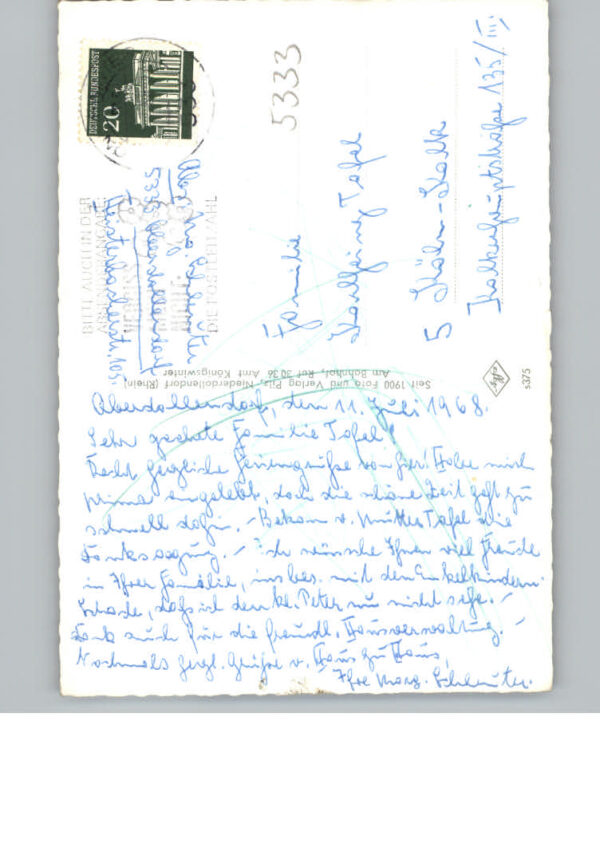 DEUTSCHE BUNDESPOST
20
5333
BITTE AUCH IN DER
DIE POSTLEITZAHL
Familie
Karlheinz Tofel
5 Köln-Kalk
Kalker Hauptstraße 135/III.
Seit 1900 Foto und Verlag Pilz, Niederdollendorf (Rhein)
Am Bahnhof, Ruf 30 36 Amt Königswinter
Agfa
s375
Oberdollendorf, den 11. Juli 1968.
Sehr geehrte Familie Tofel!
Recht herzliche Feriengrüße von hier! Habe mich
prima eingelebt, doch die schöne Zeit geht zu
schnell dahin. - Bekam v. Mutter Tofel die
Danksagung. - Ich wünsche Ihnen viel Freude
in Ihrer Familie, insbes. mit den Enkelkindern.
Schade, daß ich den kl. Peter nun nicht sehe. -
Dank auch für die freundl. Hausverwaltung. -
Nochmals herzl. Grüße v. Haus zu Haus,
Ihre Marg. Schlüter.